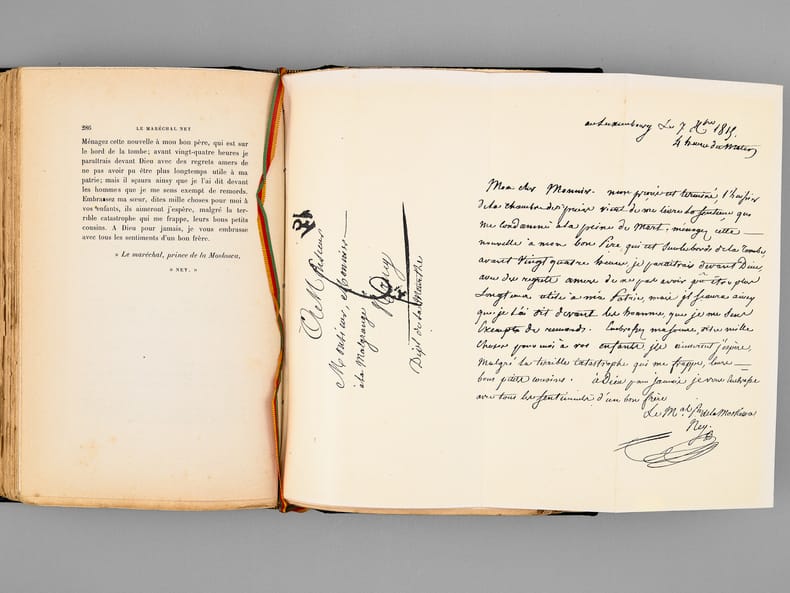 286 LE MARÉCHAL NEY
Ménagez cette nouvelle à mou bon père, qui est sur
le bord de la tombe; avant vingt-quatre heures je
paraîtrais devant Dieu avec des regrets amers de
ne pas avoir pu être plus longtemps utile à ma
patrie; mais il sçaurs ainsy que je l'ai dit devant
les hommes que je me sens exempt de remords.
Embrassez ma sœur, dites mille choses pour moi à
vos enfants, ils aimeront j'espère, malgré la ter-
rible catastrophe qui me frappe, leurs bons petits
cousins. A Dieu pour jamais, je vous embrasse
avec tous les sentiments d'un bon frère.
« Le maréchal, prince de la Moskowa,
» NEY. »
A Monsieur
Monsieur, Monnier
à la Malgrange
Nancy
Dépt de la Meurthe
au Luxembourg Le 7 Xbre 1815.
4 heure du Matin
Mon cher Monnier. mon procès est terminé l'huissier
de la chambre des pairs vient de me lire la sentence que
me condamne à la peine de Mort, menagez cette
nouvelle à mon bon Père qui est sur le bords de la Tombe,
avant Vingt quatre heure je paraitrais devant Dieu,
avec des regrets amers de ne pas avoir pû être plus
Longtems utile à ma Patrie, mais il sçaura ainsy
que je l'ai dit devant les hommes, que je me sens
Exempts de remords. Embrassez ma soeur, dite mille
choses pour moi à vos enfants ils aimeront j'espère,
malgré la terrible catastrophe qui me frappe, leurs
bons petits cousins. à Dieu pour jamais je vous Embrasse
avec tous les sentiments d'un bon frère
Le Mal Pce de la Moskowa
Ney.